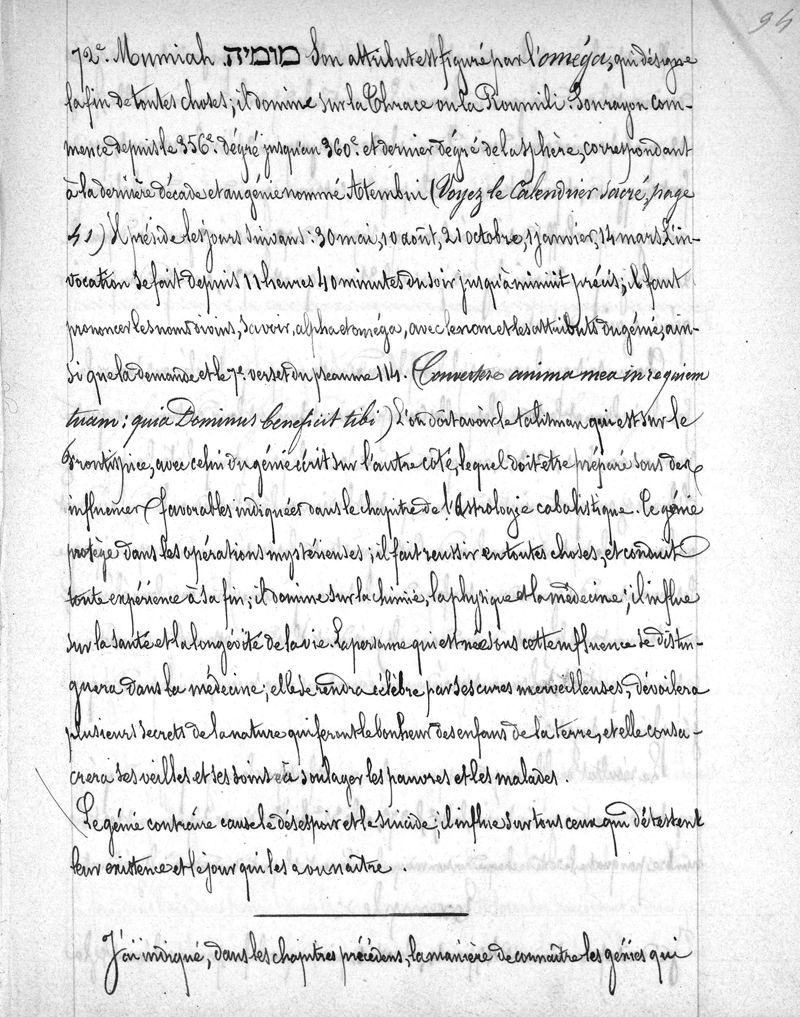 94
72e. Mumiah מומיה. Son attribut est figuré par l'oméga, qui désigne
la fin de toutes choses; il domine sur la Thrace ou la Roumili Son rayon com-
mence depuis le 356e. dégré jusqu'au 360e. et dernier dégré de la sphère, correspondant
à la dernière décade et au génie nommé Atembui (Voyez le Calendrier sacré, page
41) Il préside les jours suivans: 30 mai, 10 août, 21 octobre, 1 janvier, 14 mars L'in-
vocation se fait depuis 11 heures 40 minutes du soir jusqu'à minuit précis; il faut
prononcer les noms divins, savoir, alpha et oméga, avec le nom et les attributs du génie, ain-
si que la demande et le 7e. verset du pseaume 114. (Convertere anima mea in requiem
tuam: quia Dominus beneficit tibi) L'on doit avoir le talisman qui est sur le
frontispice, avec celui du génie écrit sur l'autre côté, lequel doit être préparé sous des
influences favorables indiquées dans le chapitre de l'Astrologie cabalistique. Ce génie
protège dans les opérations mystérieuses; il fait réussir en toutes choses, et conduit
toute expérience à sa fin; il domine sur la chimie, la physique et la médecine; il influe
sur la santé et la longévité de la vie. La personne qui est née sous cette influence se distin-
guera dans la médecine; elle se rendra célèbre par ses cures merveilleuses, dévoilera
plusieurs secrets de la nature qui feront le bonheur des enfans de la terre, et elle consa-
crera ses veilles et ses soins à soulager les pauvres et les malades.
Le génie contraire cause le désespoir et le suicide; il influe sur tous ceux qui détestent
leur existence et le jour qui les a vu naître.
J'ai indiqué, dans les chapitres précédens, la manière de connaître les génies qui